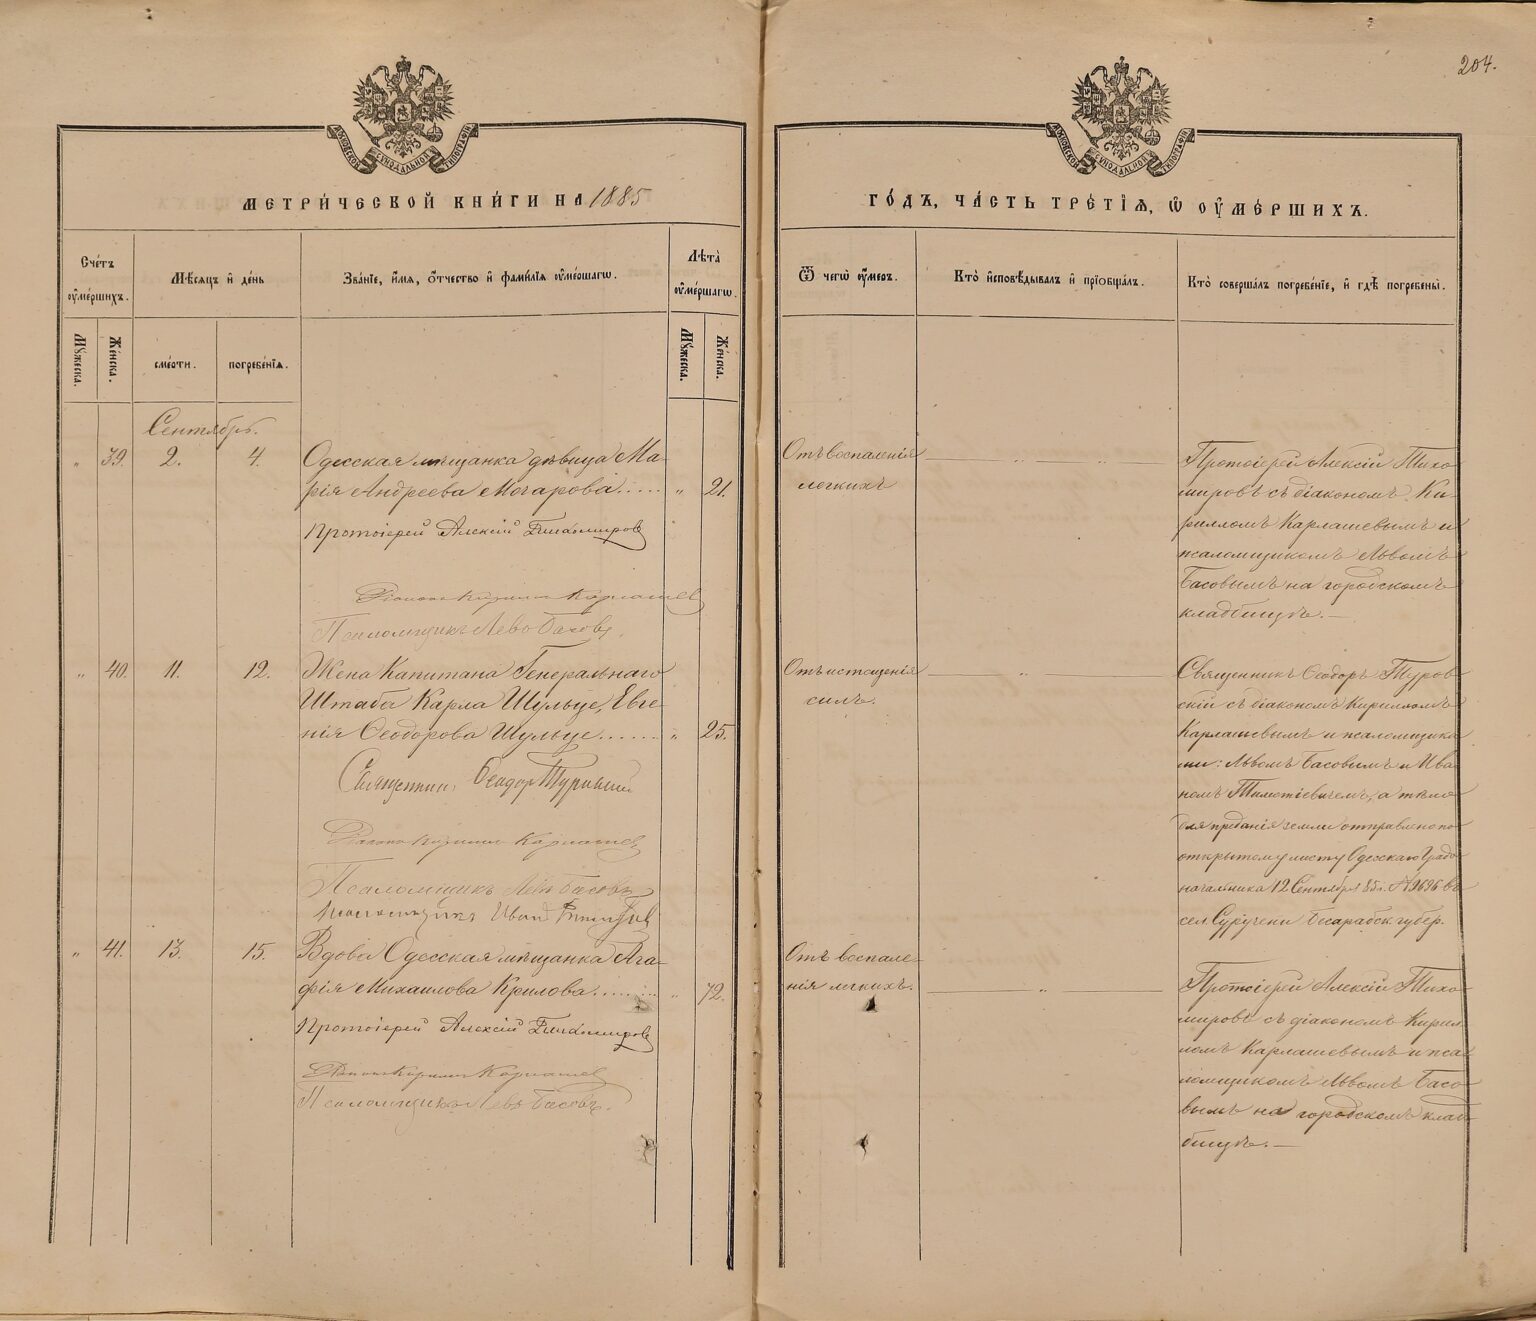 204.
МОСКОВСКОЙ СѴНОДАЛЬНОЙ ТИПОГРАФІИ
МОСКОВСКОЙ СѴНОДАЛЬНОЙ ТИПОГРАФІИ
МЕТРИ́ЧЕСКОЙ КНИ́ГИ НА 1885
ГО́ДЪ, ЧА́СТЬ ТРЕ́ТІѦ, Ѡ ОУМЕ́РШИХЪ.
Сче́тъ оуме́ршихъ.
Мѣ́сѧцъ и де́нь
Зва́ніе, и́мѧ, о́тчество и фами́лїѧ оуме́ршагѡ.
Лѣта̀ оуме́ршагѡ.
Ѿ чегѡ̀ оу́меръ.
Кто̀ исповѣ́дывалъ и прїобща́лъ.
Кто̀ соверша́лъ погребе́нїе, и гдѣ̀ погребены̀.
Мꙋ́жеска.
Же́нска.
сме́рти.
погребе́нїѧ.
Мꙋ́жеска.
Же́нска.
Сентябрь.
„ 39. 2. 4. Одесская мѣщанка дѣвица Ма-
рія Андреева Мочарова..... „ 21.
Протоіерей Алексій Тихомировъ
Діаконъ Кириллъ Карлашевъ
Псаломщикъ Левъ Басовъ.
Отъ воспаленія
легкихъ
Протоіерей Алексій Тихо-
мировъ съ діакономъ Ки-
рилломъ Карлашевымъ и
псаломщикомъ Львомъ
Басовымъ на городскомъ
кладбищѣ.—
„ 40. 11. 12. Жена Капитана Генеральнаго
Штаба Карла Шульце, Евге-
нія Ѳеодорова Шульце....... „ 25.
Священникъ Ѳеодоръ Туровскій
Діаконъ Кириллъ Карлашевъ
Псаломщикъ Левъ Басовъ
Псаломщикъ Иванъ
Отъ истощенія
силъ.
Священникъ Ѳеодоръ Туров-
скій съ діакономъ Кирилломъ
Карлашевымъ и псаломщика-
ми: Львомъ Басовымъ и Ива-
номъ Тимотіевичемъ, а тѣло
для преданія земли отправлено по
открытому листу Одесскаго Градо-
начальника 12 Сентября 85 г. № 9696 въ
сел. Суручени Бесарабск. губер.
„ 41. 13. 15. Вдова Одесская мѣщанка Ага-
фія Михаилова Крилова........ „ 72.
Протоіерей Алексій Тихомировъ
Діаконъ Кириллъ Карлашевъ
Псаломщикъ Левъ Басовъ.
Отъ воспале-
нія легкихъ.
Протоіерей Алексій Тихо-
мировъ съ діакономъ Кирил-
ломъ Карлашевымъ и пса-
ломщикомъ Львомъ Басо-
вымъ на городскомъ клад-
бищѣ.—